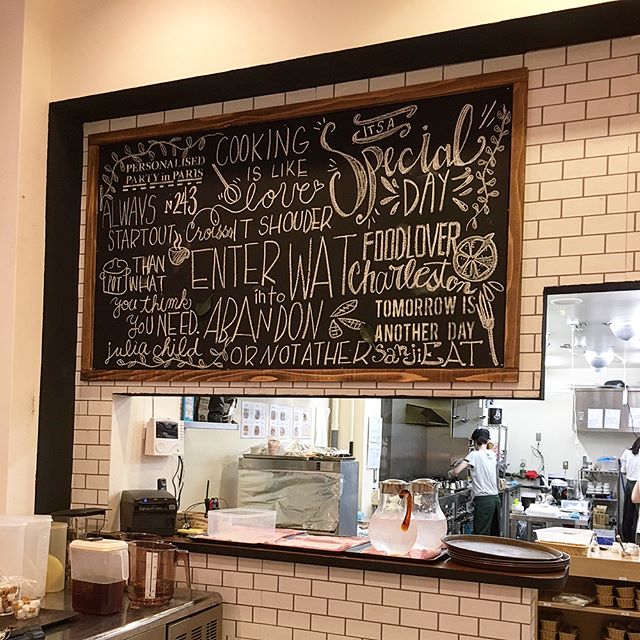 PERSONALISED
PARTY in PARIS
ALWAYS No 243
STARTOUT Croissant
THAN
WHAT
you think
YOU NEED.
julia child
COOKING
IS LIKE
love
IT SHOULDER
ENTER WAT
into
ABANDON
OR NOTATHER
IT'S A
Special
DAY
FOODLOVER
Charleston
TOMORROW IS
ANOTHER DAY
Sanji EAT